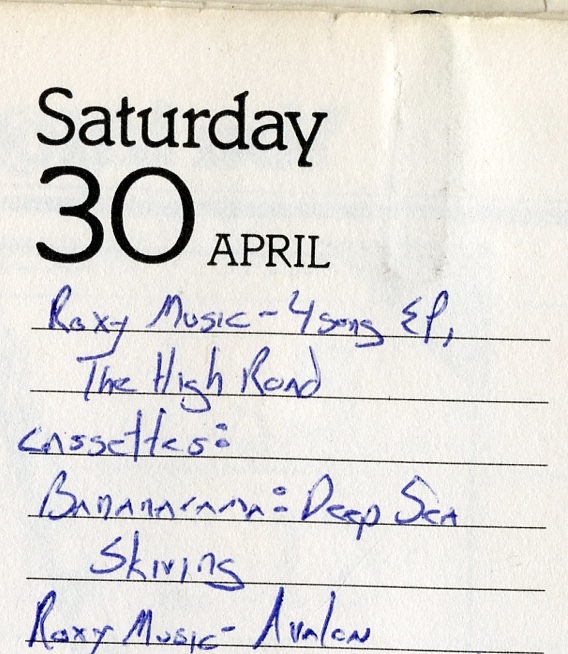 Saturday
30 APRIL
Roxy Music - 4 song EP,
The High Road
Cassettes:
Bananarama: Deep Sea
Skiving
Roxy Music - Avalon